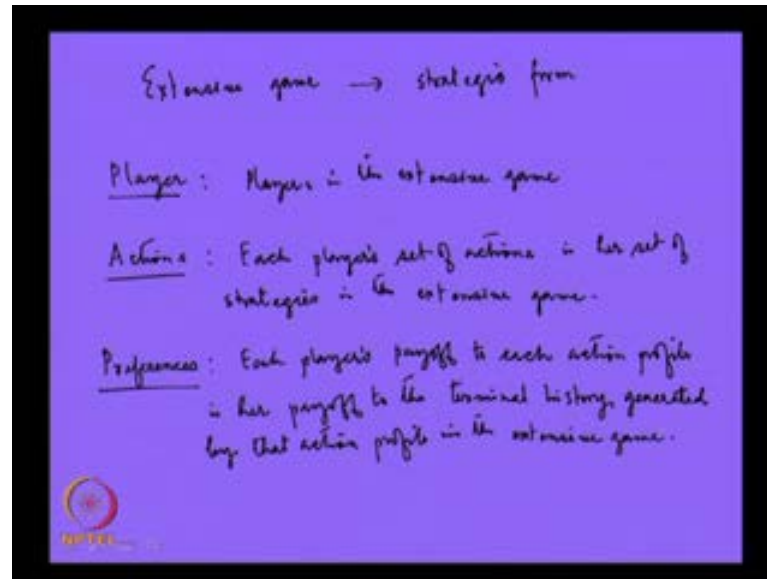 Extensive game → strategic form
Player : Players in the extensive game
Actions : Each player's set of actions is her set of
strategies in the extensive game.
Preferences : Each player's payoff to each action profile
is her payoff to the terminal history, generated
by that action profile in the extensive game.
NPTEL